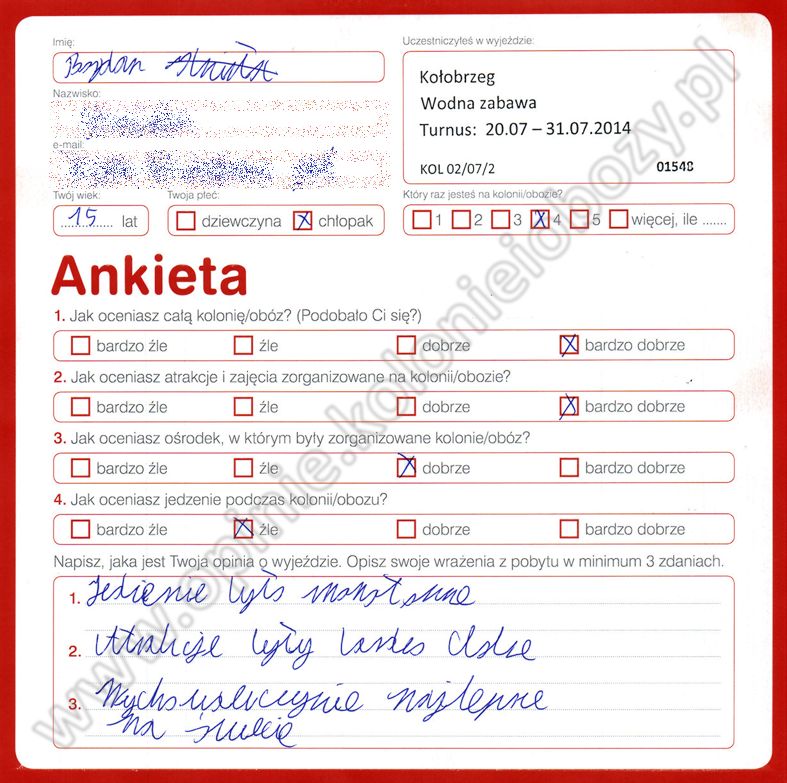 Imię:
Bogdan
Uczestniczyłeś w wyjeździe:
Kołobrzeg
Wodna zabawa
Turnus: 20.07 – 31.07.2014
KOL 02/07/2 01548
Nazwisko:
e-mail:
Twój wiek: Twoja płeć: Który raz jesteś na kolonii/obozie?
15 lat dziewczyna chłopak 1 2 3 4 5 więcej, ile .......
Ankieta
1. Jak oceniasz całą kolonię/obóz? (Podobało Ci się?)
bardzo źle źle dobrze bardzo dobrze
2. Jak oceniasz atrakcje i zajęcia zorganizowane na kolonii/obozie?
bardzo źle źle dobrze bardzo dobrze
3. Jak oceniasz ośrodek, w którym były zorganizowane kolonie/obóz?
bardzo źle źle dobrze bardzo dobrze
4. Jak oceniasz jedzenie podczas kolonii/obozu?
bardzo źle źle dobrze bardzo dobrze
Napisz, jaka jest Twoja opinia o wyjeździe. Opisz swoje wrażenia z pobytu w minimum 3 zdaniach.
1. Jedzenie było monotonne
2. Atrakcje były bardzo dobre
3. Wychowawczynie najlepsze
na świecie
www.opinie.kolonieiobozy.pl